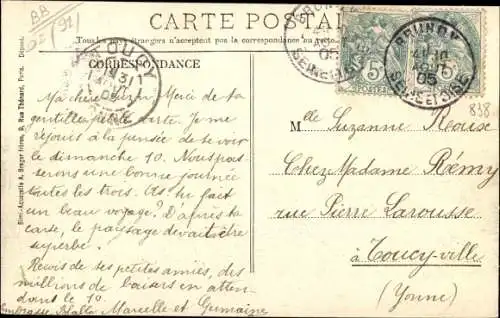 BB
CARTE POSTALE
Tous les pays étrangers n'acceptent pas la correspondance au recto.
CORRESPONDANCE
TOUCY
31
BRUNOY
05
SEINE ET OISE
BRUNOY
05
SEINE ET OISE
5
5
POSTES
838
Simi-Aquarelle A. Breger frères, 9, Rue Thénard, Paris. Déposé.
Ma chère Suzon Merci de ta
gentille petite carte. Je me
réjouis à la pensée de te voir
le dimanche 10. Nous pas-
serons une bonne journée
toutes les trois. As-tu fait
un beau voyage? D'après ta
carte, le paysage devait être
superbe.
Reçois de tes petites amies, des
millions de baisers en atten-
dant le 10.
Embrasse Marcelle et Germaine
Mlle Suzanne Roux
Chez Madame Rémy
rue Pierre Larousse
à Toucy-ville
(Yonne)